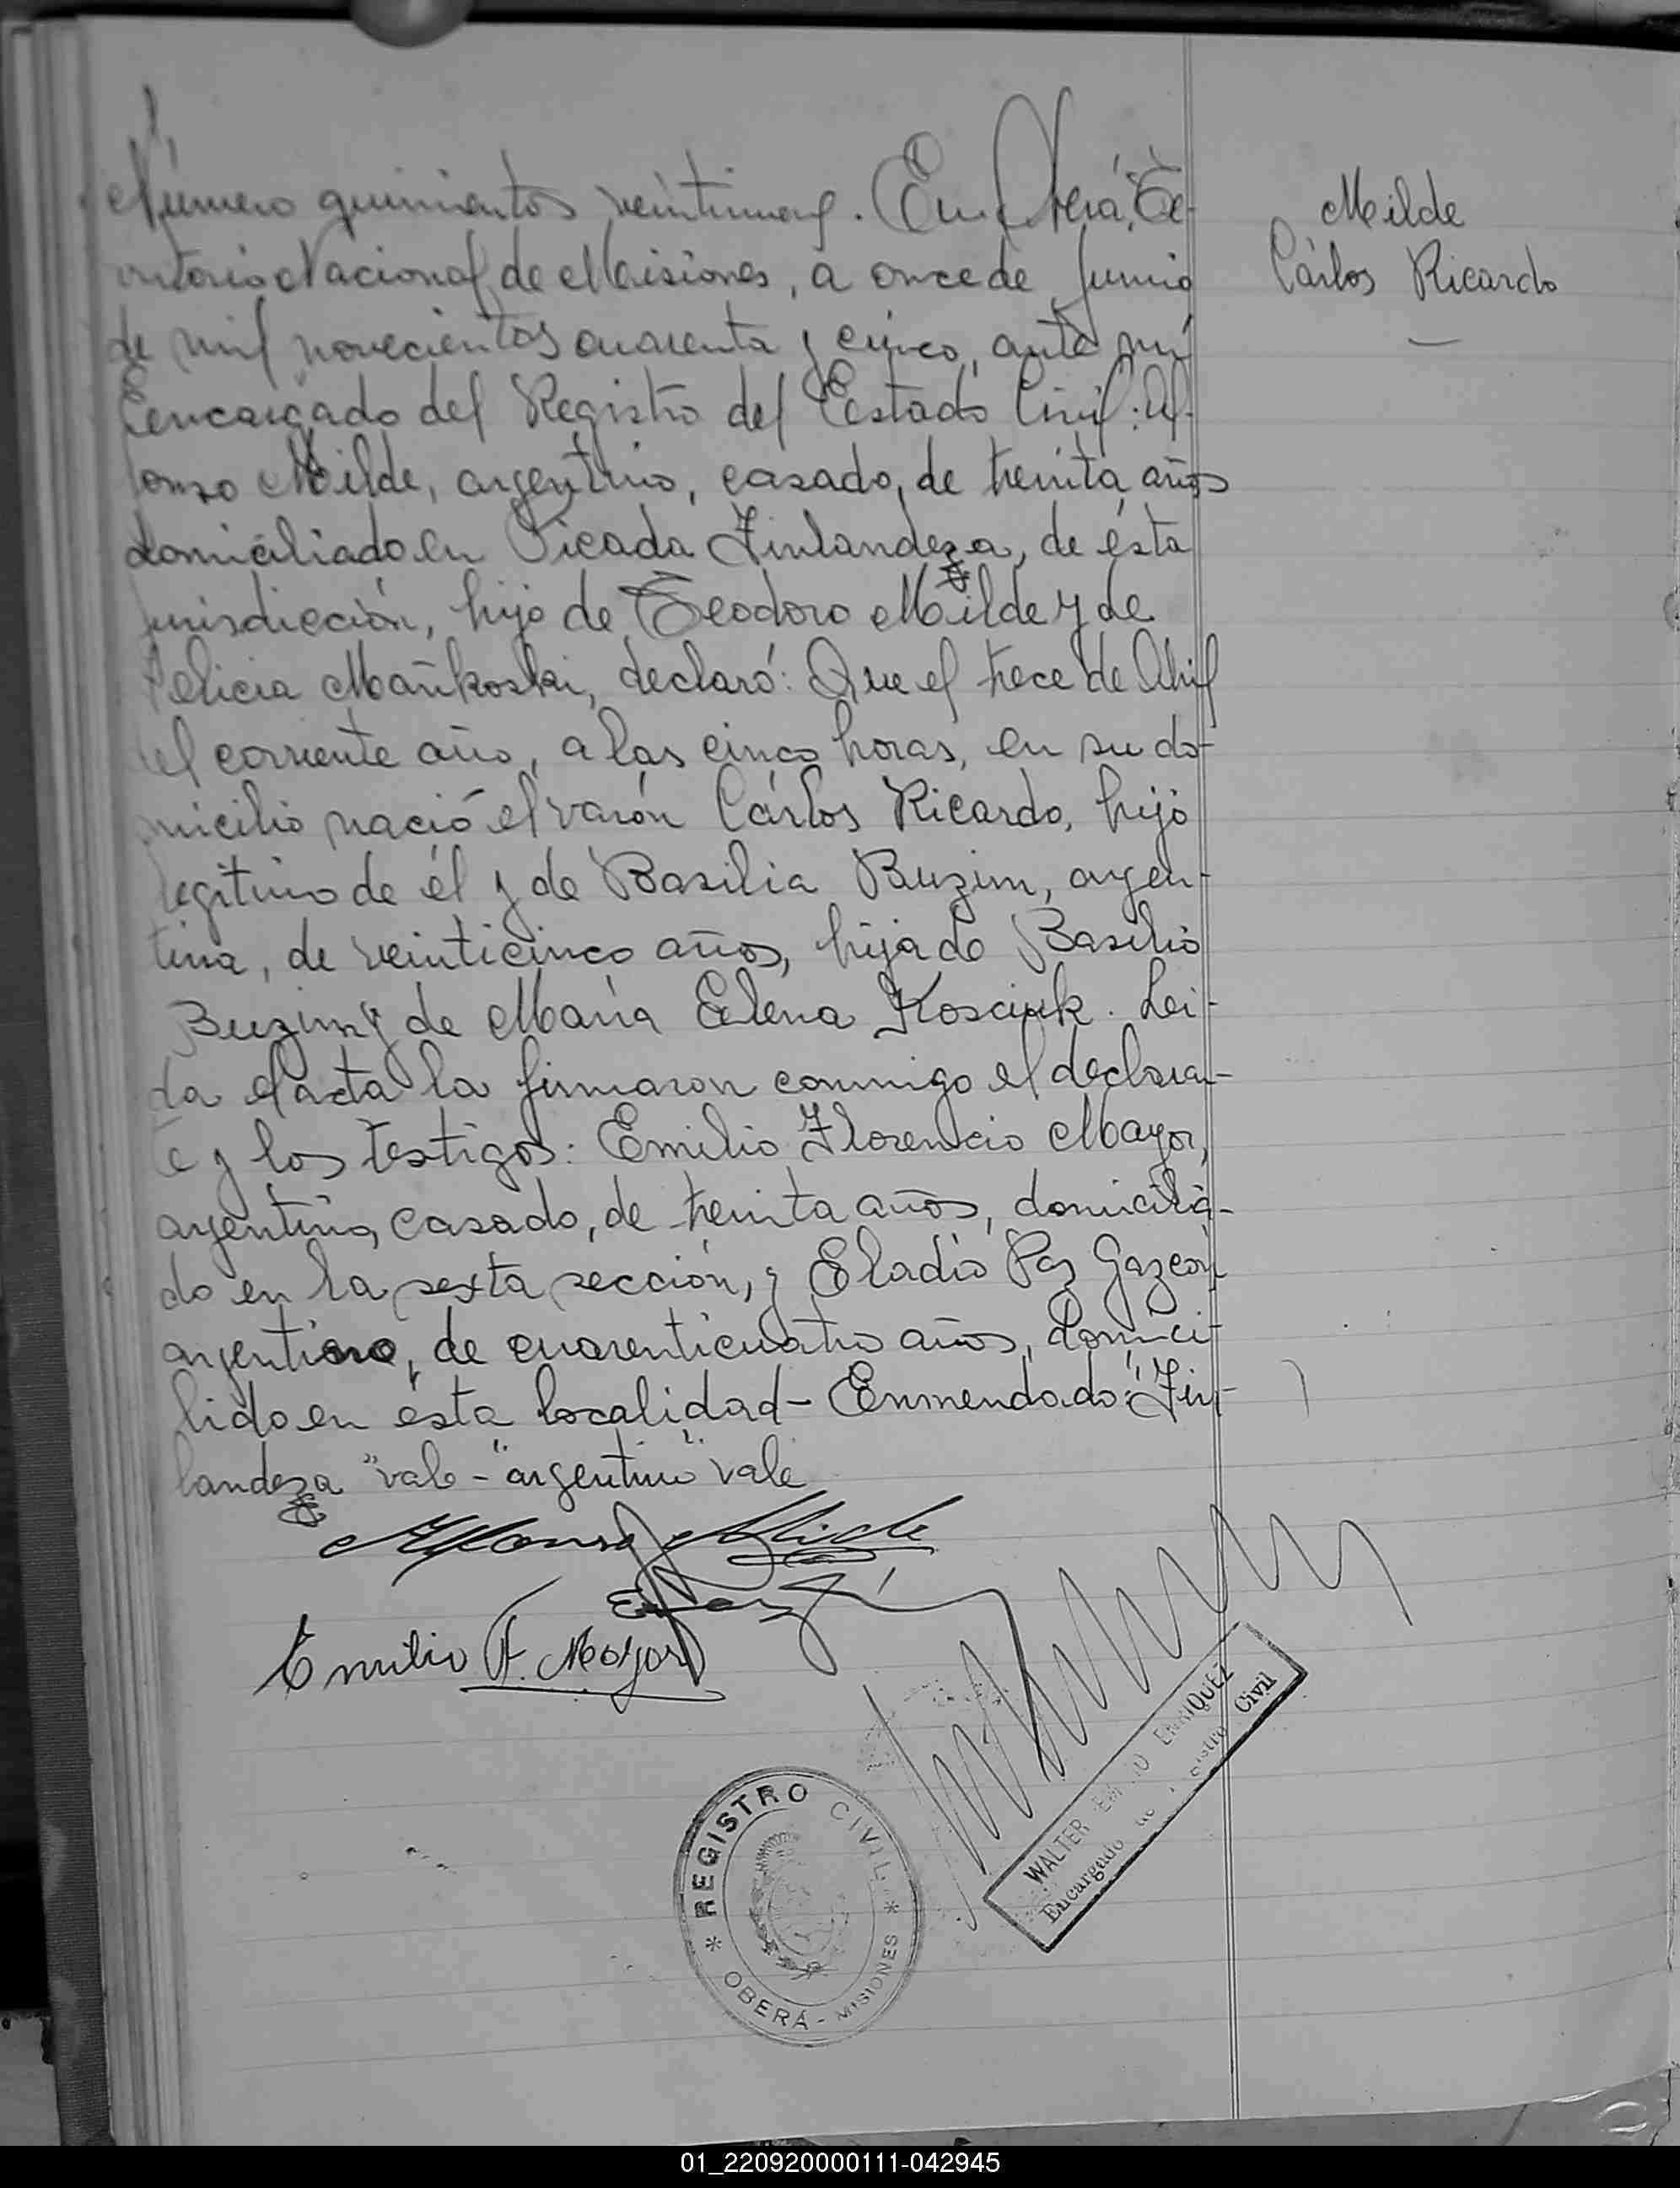 Número quinientos veintinueve. En Oberá, Te-
rritorio Nacional de Misiones, a once de Junio
de mil novecientos cuarenta y cinco, ante mí
Eencargado del Registro del Eestado Civil: Al-
fonso Milde, argentino, casado, de treinta años
domiciliado en Picada Finlandeza, de ésta
jurisdicción, hijo de Teodoro Milde y de
Felicia Mañkoski, declaró: Que el trece de Abril
del corriente año, a las cinco horas, en su do-
micilio nació el varón Cárlos Ricardo, hijo
legítimo de él y de Basilia Buzim, argen-
tina, de veinticinco años, hija de Basilio
Buzim y de María Elena Kosciuk. Lei-
da el acta la firmaron conmigo el declaran-
te y los testigos: Emilio Florencio Mayor,
argentino, casado, de treinta años, domicilia-
do en la sexta sección, y Eladio Paz Gazcón
argentino, de cuarenticuatro años, domici-
lido en ésta localidad - Enmendado: "Fin-
landeza" vale - "argentino" vale
Milde
Cárlos Ricardo
Alfonso Milde
Emilio F. Mayor
REGISTRO CIVIL
OBERÁ - MISIONES
WALTER EMILIO ENRIQUEZ
Encargado del Registro Civil
01_220920000111-042945